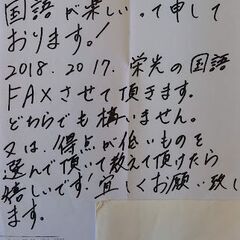 国語が楽しい、って申して
おります!
2018. 2017. 栄光の国語
FAXさせて頂きます。
どちらでも構いません。
又は、得点が低いものを
選んで頂いて教えて頂けたら
嬉しいです!宜しくお願い致し
ます。